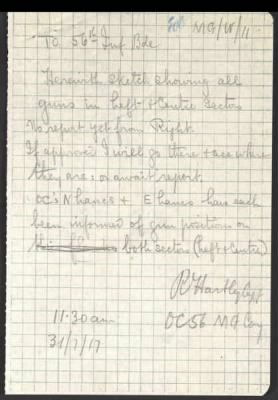 MG/W/11
To 56th Inf Bde
Herewith sketch showing all
guns in Left + Centre Sectors
No report yet from Right.
If approved I will go there + see where
they are: or await report.
OC's N Lancs + E Lancs have each
been informed of gun positions on
both sectors (Left + Centre)
R Hartley Capt
11.30 am OC 56 MG Coy
31/7/17